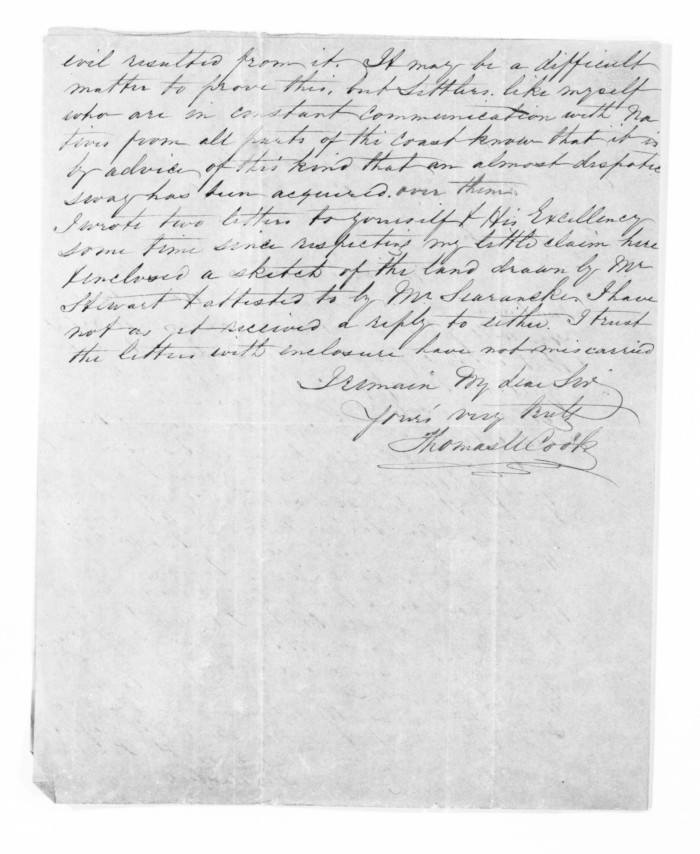 evil resulted from it. It may be a difficult
matter to prove this, but Settlers. like myself
who are in constant communication with Na
tives from all parts of the coast know that it is
by advice of this kind that an almost dispotic
sway has been acquired. over them.
I wrote two letters to yourself & His Excellency
some time since respecting my little claim here
& enclosed a sketch of the land drawn by Mr
Stewart & attested to by Mr I have
not as yet received a reply to either. I trust
the letters with enclosure have not miscarried
I remain My dear Sir
Yours very truly
Thomas U Cook